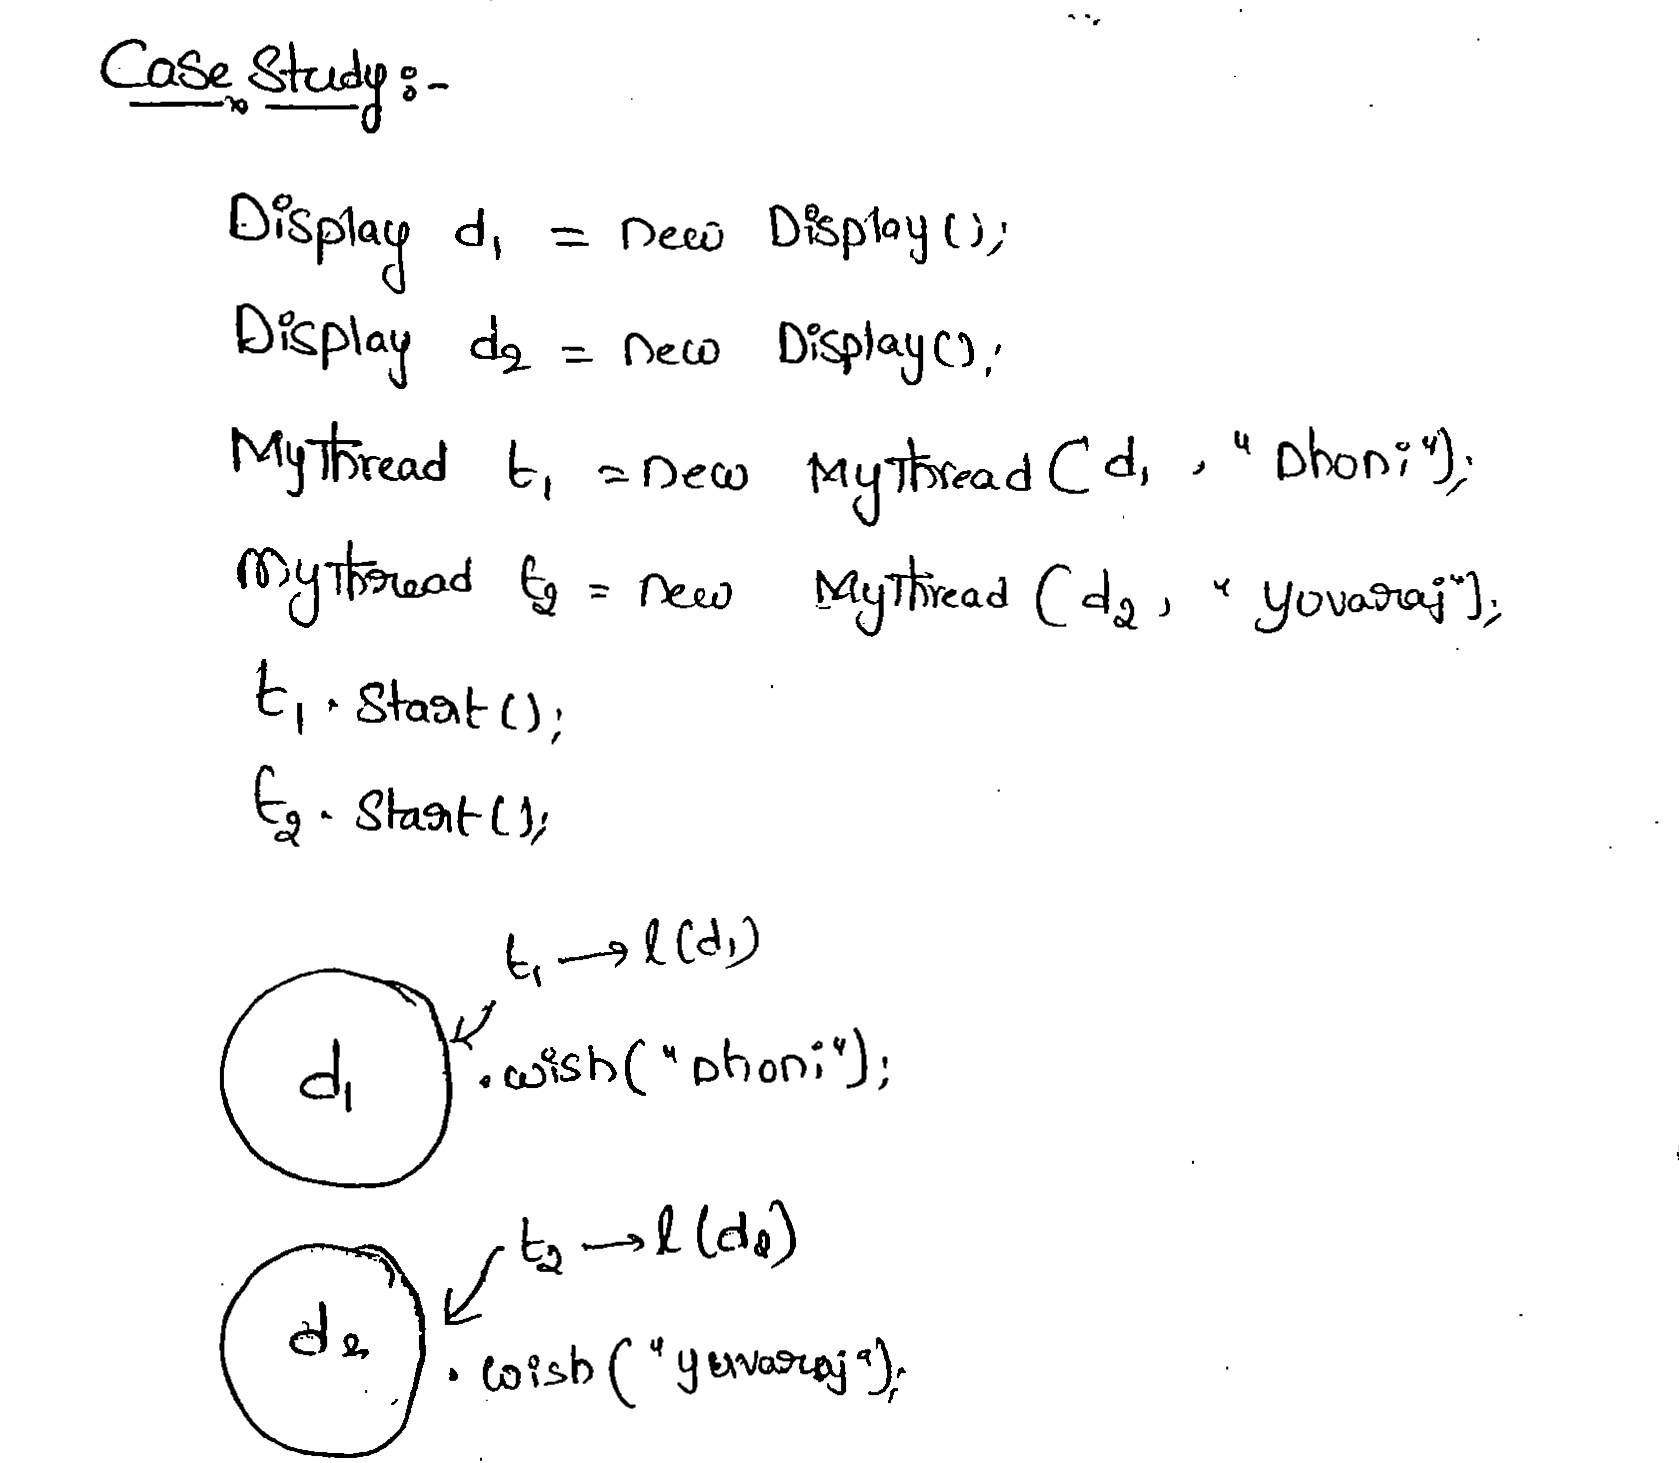 Case Study :-
Display d1 = new Display();
Display d2 = new Display();
MyThread t1 = new MyThread(d1, "Dhoni");
MyThread t2 = new MyThread(d2, "Yuvaraj");
t1.Start();
t2.Start();
t1 → l(d1)
d1 .wish("Dhoni");
t2 → l(d2)
d2 .wish("yuvaraj");